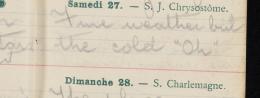 Samedi 27. — S. J. Chrysostôme.
Fine weather but
the cold "Oh"
Dimanche 28. — S. Charlemagne.